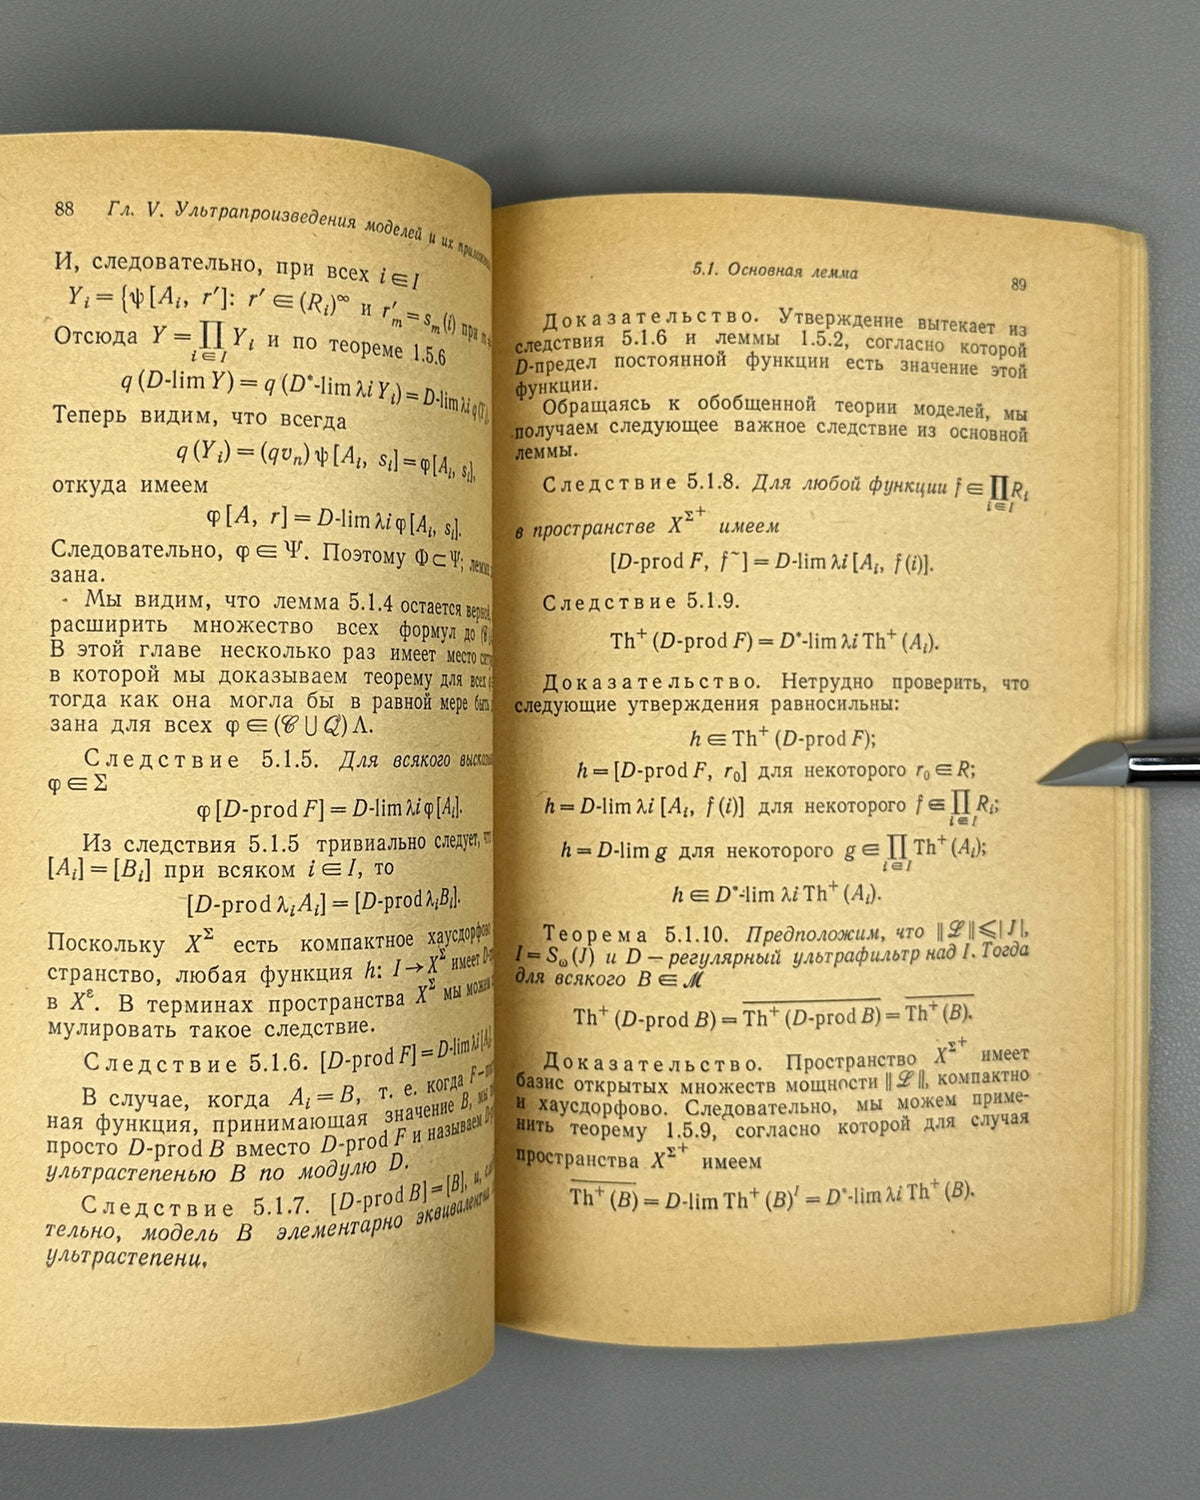 88 Гл. V. Ультрапроизведения моделей и их
И, следовательно, при всех i ∈ I
Y_i = {ψ [A_i, r′]: r′ ∈ (R_i)^∞ и r′_m = s_m (i) при
Отсюда Y = ∏_{i∈I} Y_i и по теореме 1.5.6
q (D-lim Y) = q (D*-lim λi Y_i) = D-lim λi q (Y_i).
Теперь видим, что всегда
q (Y_i) = (qv_n) ψ [A_i, s_i] = φ [A_i, s_i],
откуда имеем
φ [A, r] = D-lim λi φ [A_i, s_i].
Следовательно, φ ∈ Ψ. Поэтому Φ ⊂ Ψ;
зана.
Мы видим, что лемма 5.1.4 остается
расширить множество всех формул до
В этой главе несколько раз имеет место
в которой мы доказываем теорему для всех
тогда как она могла бы в равной мере быть
зана для всех φ ∈ (𝒞 ∪ Q) Λ.
Следствие 5.1.5. Для всякого
φ ∈ Σ
φ [D-prod F] = D-lim λi φ [A_i].
Из следствия 5.1.5 тривиально следует,
[A_i] = [B_i] при всяком i ∈ I, то
[D-prod λ_i A_i] = [D-prod λ_i B_i].
Поскольку X^Σ есть компактное
странство, любая функция h: I → X^Σ имеет
в X^ε. В терминах пространства X^Σ мы можем
мулировать такое следствие.
Следствие 5.1.6. [D-prod F] = D-lim λi [A_i].
В случае, когда A_i = B, т. е. когда F —
ная функция, принимающая значение B, мы
просто D-prod B вместо D-prod F и называем
ультрастепенью B по модулю D.
Следствие 5.1.7. [D-prod B] = [B], и,
тельно, модель B элементарно эквивалентна
ультрастепени.
5.1. Основная лемма 89
Доказательство. Утверждение вытекает из
следствия 5.1.6 и леммы 1.5.2, согласно которой
D-предел постоянной функции есть значение этой
функции.
Обращаясь к обобщенной теории моделей, мы
получаем следующее важное следствие из основной
леммы.
Следствие 5.1.8. Для любой функции f ∈ ∏_{i∈I} R_i
в пространстве X^{Σ^+} имеем
[D-prod F, f^~] = D-lim λi [A_i, f (i)].
Следствие 5.1.9.
Th^+ (D-prod F) = D*-lim λi Th^+ (A_i).
Доказательство. Нетрудно проверить, что
следующие утверждения равносильны:
h ∈ Th^+ (D-prod F);
h = [D-prod F, r_0] для некоторого r_0 ∈ R;
h = D-lim λi [A_i, f (i)] для некоторого f ∈ ∏_{i∈I} R_i;
h = D-lim g для некоторого g ∈ ∏_{i∈I} Th^+ (A_i);
h ∈ D*-lim λi Th^+ (A_i).
Теорема 5.1.10. Предположим, что ‖ℒ‖ ⩽ |J|,
I = S_ω (J) и D — регулярный ультрафильтр над I. Тогда
для всякого B ∈ ℳ
Th^+ (D-prod B) = \overline{Th^+ (D-prod B)} = \overline{Th^+ (B)}.
Доказательство. Пространство X^{Σ^+} имеет
базис открытых множеств мощности ‖ℒ‖, компактно
и хаусдорфово. Следовательно, мы можем приме-
нить теорему 1.5.9, согласно которой для случая
пространства X^{Σ^+} имеем
\overline{Th^+ (B)} = D-lim Th^+ (B)^I = D*-lim λi Th^+ (B).